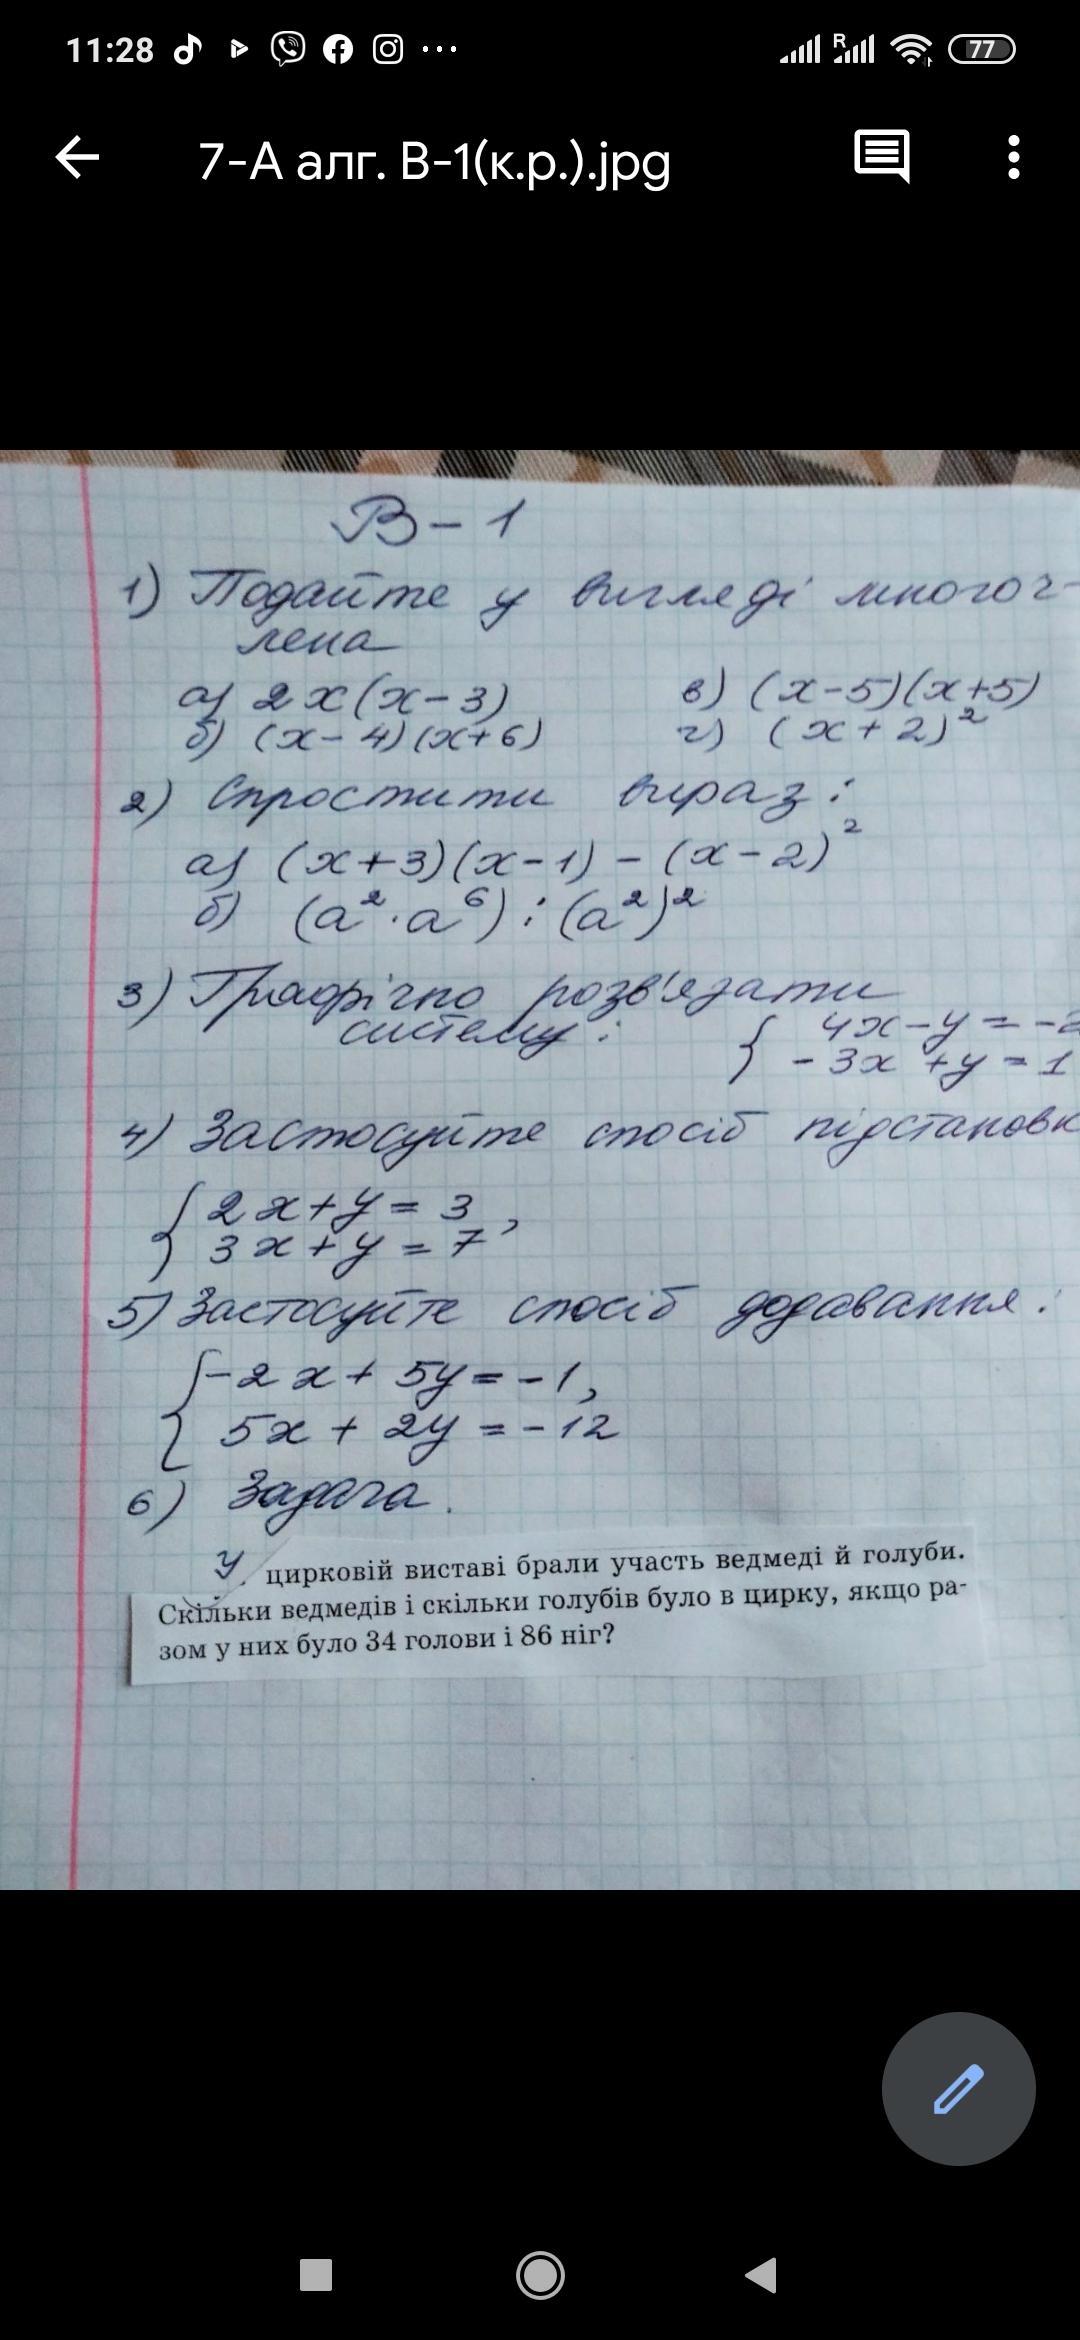 11:28
77
7-А алг. В-1(к.р.).jpg
В-1
1) Подайте у вигляді многоч-
лена
а) 2x(x-3) в) (x-5)(x+5)
б) (x-4)(x+6) г) (x+2)²
2) Спростити вираз:
а) (x+3)(x-1)-(x-2)²
б) (a²·a⁶):(a²)²
3) Графічно розв'язати
систему: { 4x-y=-2
-3x+y=1
4) Застосуйте спосіб підстановк
{ 2x+y=3,
3x+y=7
5) Застосуйте спосіб додавання:
{ -2x+5y=-1,
5x+2y=-12
6) Задача.
У цирковій виставі брали участь ведмеді й голуби.
Скільки ведмедів і скільки голубів було в цирку, якщо ра-
зом у них було 34 голови і 86 ніг?